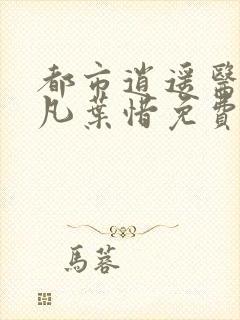 都市逍遥醫
凡葉惜免費
馬蓉